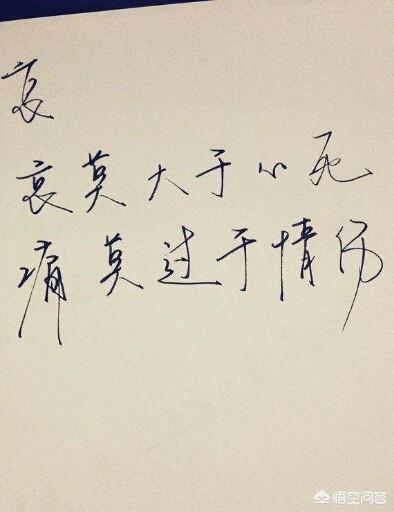 哀
哀莫大于心死
痛莫过于情伤
悟空问答